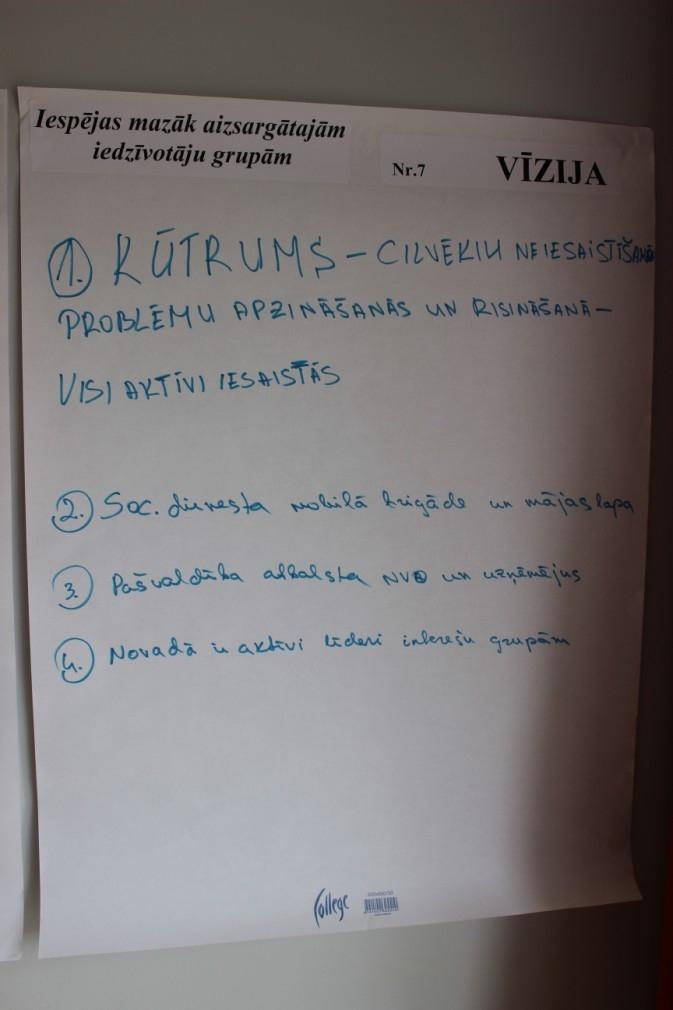 Iespējas mazāk aizsargātajām
iedzīvotāju grupām
Nr.7 VĪZIJA
1. KŪTRUMS – CILVĒKU NEIESAISTĪŠANĀS
PROBLĒMU APZINĀŠANĀS UN RISINĀŠANĀ –
VISI AKTĪVI IESAISTĀS
2. Soc. dienesta mobilā brigāde un mājas lapa
3. Pašvaldība atbalsta NVO un uzņēmējus
4. Novadā ir aktīvi līderi interešu grupām
College